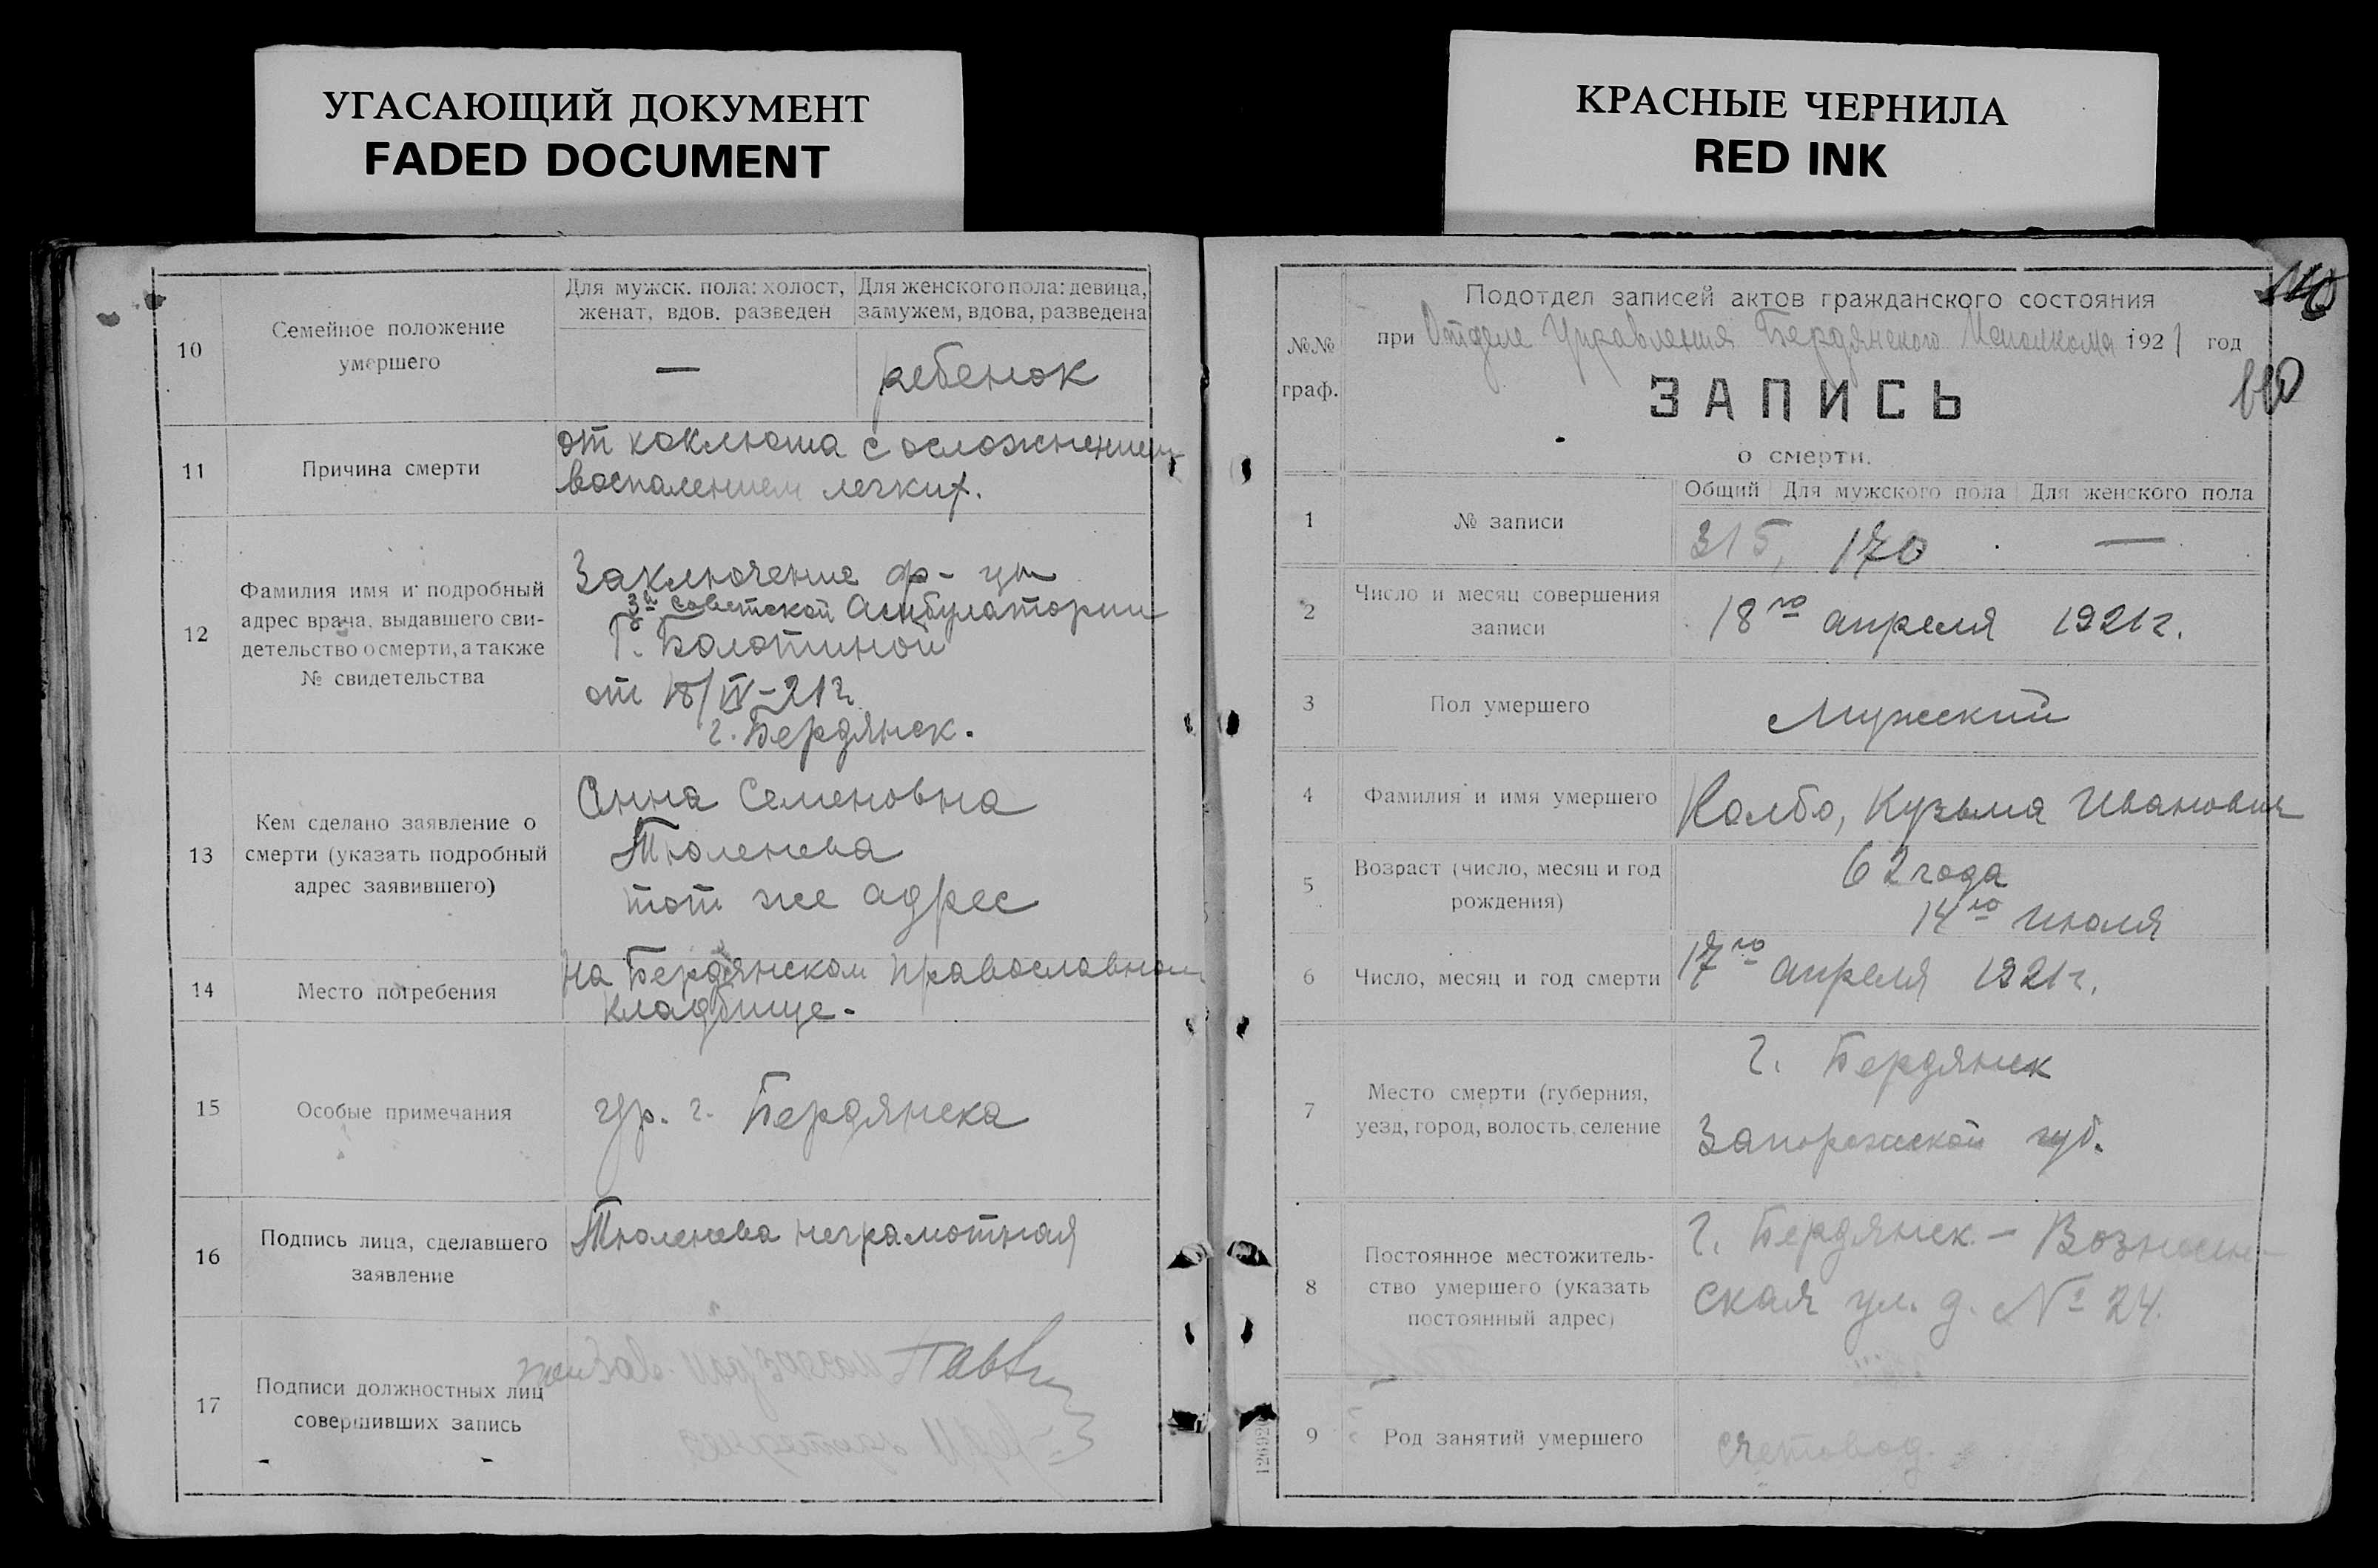 УГАСАЮЩИЙ ДОКУМЕНТ
FADED DOCUMENT
КРАСНЫЕ ЧЕРНИЛА
RED INK
10
Семейное положение
умершего
Для мужск. пола: холост,
женат, вдов. разведен
Для женского пола: девица,
замужем, вдова, разведена
—
ребенок
11
Причина смерти
от коклюша с осложнением
воспалением легких.
12
Фамилия имя и подробный
адрес врача, выдавшего сви-
детельство о смерти, а также
№ свидетельства
Заключение ф-цы
3й советской Амбулатории
Г. Болотиной
от 18/IV-21г
г. Бердянск.
13
Кем сделано заявление о
смерти (указать подробный
адрес заявившего)
Анна Семеновна
Тюленева
тот же адрес
14
Место погребения
На Бердянском православном
кладбище.
15
Особые примечания
гр. г. Бердянска
16
Подпись лица, сделавшего
заявление
Тюленева неграмотная
17
Подписи должностных лиц
совершивших запись
140
№№
граф.
Подотдел записей актов гражданского состояния
при Отделе Управления Бердянского Исполкома 1921 год
ЗАПИСЬ
о смерти.
1
№ записи
Общий
Для мужского пола
Для женского пола
315,
170
—
2
Число и месяц совершения
записи
18го апреля 1921г.
3
Пол умершего
Мужский
4
Фамилия и имя умершего
Колбо, Кузьма Иванович
5
Возраст (число, месяц и год
рождения)
62 года
14го июля
6
Число, месяц и год смерти
17го апреля 1921г.
7
Место смерти (губерния,
уезд, город, волость, селение
г. Бердянск
Запорожской губ.
8
Постоянное местожитель-
ство умершего (указать
постоянный адрес)
г. Бердянск - Вознесен-
ская ул. д. № 24.
9
Род занятий умершего
счетовод.